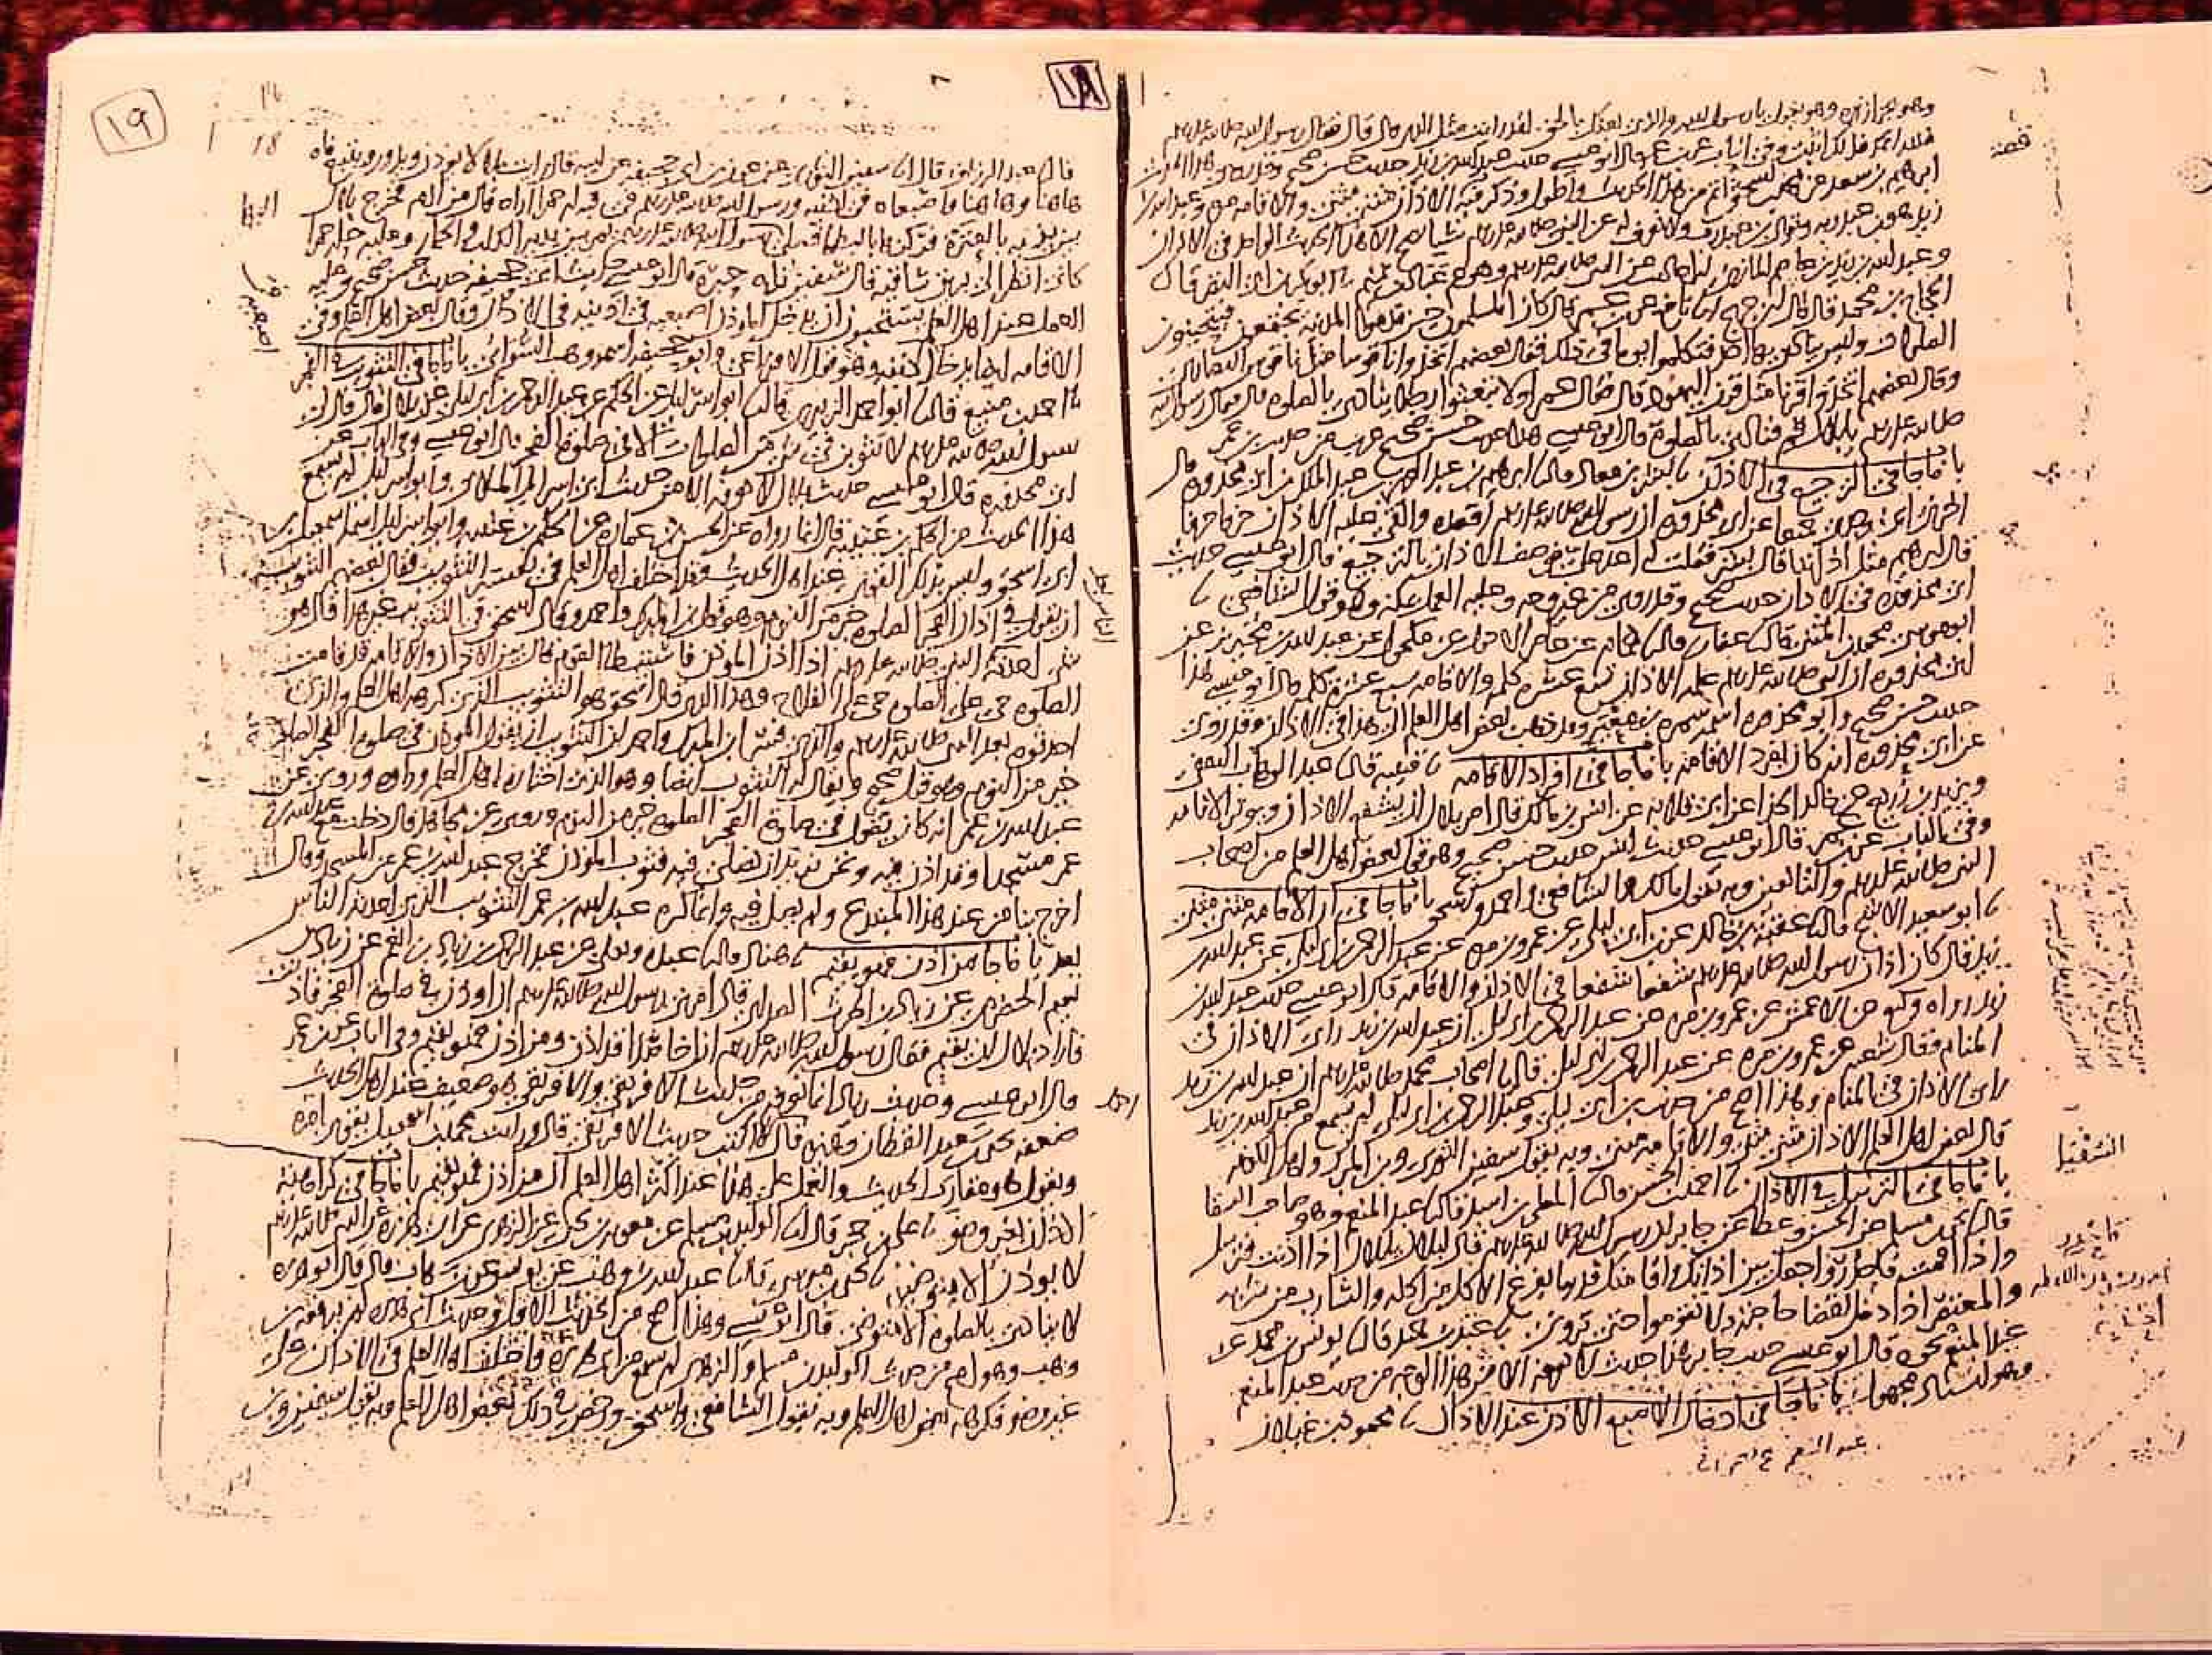 وهو يجر ازاره وهو يقول يا رسول الله والذي بعثك بالحق لقد رايت مثل الذي قال قال فقال رسول الله صلى الله عليه وسلم
فلله الحمد فذلك اثبت وفي الباب عن ابن عمر قال ابو عيسى حديث عبد الله بن زيد حديث حسن صحيح وقد روى هذا الحديث
ابرهيم بن سعد عن محمد بن اسحق اتم من هذا الحديث واطول وذكر فيه الاذان مثنى مثنى والاقامة مرة وعبد الله بن
زيد هو ابن عبد ربه ويقال ابن عبد رب ولا نعرف له عن النبي صلى الله عليه وسلم شيا يصح الا هذا الحديث الواحد في الاذان
وعبد الله بن زيد بن عاصم المازني له احاديث عن النبي صلى الله عليه وسلم وهو عم عباد بن تميم ثنا ابو بكر بن ابي النضر قال ثنا
الحجاج بن محمد قال قال ابن جريج انا نافع عن ابن عمر قال كان المسلمون حين قدموا المدينة يجتمعون فيتحينون
الصلوات وليس ينادي بها احد فتكلموا يوما في ذلك فقال بعضهم اتخذوا ناقوسا مثل ناقوس النصارى
وقال بعضهم اتخذوا قرنا مثل قرن اليهود قال فقال عمر اولا تبعثون رجلا ينادي بالصلوة قال فقال رسول الله
صلى الله عليه وسلم يا بلال قم فناد بالصلوة قال ابو عيسى هذا حديث حسن صحيح غريب من حديث ابن عمر
باب ما جا في الترجيع في الاذان ثنا بشر بن معاذ قال ثنا ابرهيم بن عبد العزيز بن عبد الملك بن ابي محذورة قال
اخبرني ابي وجدي جميعا عن ابي محذورة ان رسول الله صلى الله عليه وسلم اقعده والقى عليه الاذان حرفا حرفا
قال ابرهيم مثل اذاننا قال بشر فقلت له اعد علي فوصف الاذان بالترجيع قال ابو عيسى حديث
ابي محذورة في الاذان حديث صحيح وقد روي من غير وجه وعليه العمل بمكة وهو قول الشافعي ثنا
ابو موسى محمد بن المثنى قال ثنا عفان قال ثنا همام عن عامر الاحول عن مكحول عن عبد الله بن محيريز عن
ابي محذورة ان النبي صلى الله عليه وسلم علمه الاذان تسع عشرة كلمة والاقامة سبع عشرة كلمة قال ابو عيسى هذا
حديث حسن صحيح وابو محذورة اسمه سمرة بن معير وقد ذهب بعض اهل العلم الى هذا في الاذان وقد روي
عن ابي محذورة انه كان يفرد الاقامة باب ما جا في افراد الاقامة ثنا قتيبة قال ثنا عبد الوهاب الثقفي
ويزيد بن زريع عن خالد الحذا عن ابي قلابة عن انس بن مالك قال امر بلال ان يشفع الاذان ويوتر الاقامة
وفي الباب عن ابن عمر قال ابو عيسى حديث انس حديث حسن صحيح وهو قول بعض اهل العلم من اصحاب
النبي صلى الله عليه وسلم والتابعين وبه يقول مالك والشافعي واحمد واسحق باب ما جا في ان الاقامة مثنى مثنى
ثنا ابو سعيد الاشج قال ثنا عقبة بن خالد عن ابن ابي ليلى عن عمرو بن مرة عن عبد الرحمن بن ابي ليلى عن عبد الله بن
زيد قال كان اذان رسول الله صلى الله عليه وسلم شفعا شفعا في الاذان والاقامة قال ابو عيسى حديث عبد الله بن
زيد رواه وكيع عن الاعمش عن عمرو بن مرة عن عبد الرحمن بن ابي ليلى ان عبد الله بن زيد راى الاذان في
المنام وقال شعبة عن عمرو بن مرة عن عبد الرحمن بن ابي ليلى قال ثنا اصحاب محمد صلى الله عليه وسلم ان عبد الله بن زيد
راى الاذان في المنام وهذا اصح من حديث ابن ابي ليلى وعبد الرحمن بن ابي ليلى لم يسمع من عبد الله بن زيد
قال بعض اهل العلم الاذان مثنى مثنى والاقامة مثنى مثنى وبه يقول سفين الثوري وابن المبرك واهل الكوفة
باب ما جا في الترسل في الاذان ثنا احمد بن الحسن قال ثنا المعلى بن اسد قال ثنا عبد المنعم وهو صاحب السقا
قال ثنا يحيى بن مسلم عن الحسن وعطا عن جابر ان رسول الله صلى الله عليه وسلم قال لبلال يا بلال اذا اذنت فترسل
واذا اقمت فاحدر واجعل بين اذانك واقامتك قدر ما يفرغ الاكل من اكله والشارب من شربه
والمعتصر اذا دخل لقضا حاجته ولا تقوموا حتى تروني ثنا عبد بن حميد قال ثنا يونس بن محمد عن
عبد المنعم نحوه قال ابو عيسى حديث جابر هذا حديث لا نعرفه الا من هذا الوجه من حديث عبد المنعم
وهو اسناد مجهول باب ما جا في ادخال الاصبع الاذن عند الاذان ثنا محمود بن غيلان
١٨
١٩
قال ثنا عبد الرزاق قال انا سفين الثوري عن عون بن ابي جحيفة عن ابيه قال رايت بلالا يوذن ويدور ويتبع فاه
هاهنا وهاهنا واصبعاه في اذنيه ورسول الله صلى الله عليه وسلم في قبة له حمرا اراه قال من ادم فخرج بلال
بين يديه بالعنزة فركزها بالبطحا فصلى اليها رسول الله صلى الله عليه وسلم يمر بين يديه الكلب والحمار وعليه حلة حمرا
كاني انظر الى بريق ساقيه قال سفين نراه حبرة قال ابو عيسى حديث ابي جحيفة حديث حسن صحيح وعليه
العمل عند اهل العلم يستحبون ان يدخل الموذن اصبعيه في اذنيه في الاذان وقال بعض اهل العلم وفي
الاقامة ايضا يدخل اصبعيه وهو قول الاوزاعي وابو جحيفة اسمه وهب السوائي باب ما جا في التثويب في الفجر
ثنا احمد بن منيع قال ثنا ابو احمد الزبيري قال ثنا ابو اسرائيل عن الحكم عن عبد الرحمن بن ابي ليلى عن بلال قال قال لي
رسول الله صلى الله عليه وسلم لا تثوبن في شي من الصلوات الا في صلوة الفجر قال ابو عيسى وفي الباب عن
ابي محذورة قال ابو عيسى حديث بلال لا نعرفه الا من حديث ابي اسرائيل الملائي وابو اسرائيل لم يسمع
هذا الحديث من الحكم بن عتيبة قال انما رواه عن الحسن بن عمارة عن الحكم بن عتيبة وابو اسرائيل اسمه اسمعيل بن
ابي اسحق وليس بذلك القوي عند اهل الحديث وقد اختلف اهل العلم في تفسير التثويب فقال بعضهم التثويب
ان يقول في اذان الفجر الصلوة خير من النوم وهو قول ابن المبرك واحمد وقال اسحق في التثويب غير هذا قال هو
شي احدثه الناس بعد النبي صلى الله عليه وسلم اذا اذن الموذن فاستبطا القوم قال بين الاذان والاقامة قد قامت
الصلوة حي على الصلوة حي على الفلاح وهذا الذي قال اسحق هو التثويب الذي كرهه اهل العلم والذي
احدثوه بعد النبي صلى الله عليه وسلم والذي فسر ابن المبرك واحمد ان التثويب ان يقول الموذن في صلوة الفجر الصلوة
خير من النوم وهو قول صحيح ويقال له التثويب ايضا وهو الذي اختاره اهل العلم وراوه وروي عن
عبد الله بن عمر انه كان يقول في صلوة الفجر الصلوة خير من النوم وروي عن مجاهد قال دخلت مع عبد الله بن
عمر مسجدا وقد اذن فيه ونحن نريد ان نصلي فيه فثوب الموذن فخرج عبد الله بن عمر من المسجد وقال
اخرج بنا من عند هذا المبتدع ولم يصل فيه وانما كره عبد الله بن عمر التثويب الذي احدثه الناس
بعد باب ما جا من اذن فهو يقيم ثنا هناد قال ثنا عبدة ويعلى عن عبد الرحمن بن زياد بن انعم عن زياد بن
نعيم الحضرمي عن زياد بن الحرث الصدائي قال امرني رسول الله صلى الله عليه وسلم ان اوذن في صلوة الفجر فاذنت
فاراد بلال ان يقيم فقال رسول الله صلى الله عليه وسلم ان اخا صدا قد اذن ومن اذن فهو يقيم وفي الباب عن ابن عمر
قال ابو عيسى وحديث زياد انما نعرفه من حديث الافريقي والافريقي هو ضعيف عند اهل الحديث
ضعفه يحيى بن سعيد القطان وغيره قال احمد لا اكتب حديث الافريقي قال ورايت محمد بن اسمعيل يقوي امره
ويقول هو مقارب الحديث والعمل على هذا عند اكثر اهل العلم ان من اذن فهو يقيم باب ما جا في كراهية
الاذان بغير وضو ثنا علي بن حجر قال انا الوليد بن مسلم عن معوية بن يحيى عن الزهري عن ابي هريرة عن النبي صلى الله عليه وسلم
لا يوذن الا متوضئ ثنا يحيى بن موسى قال ثنا عبد الله بن وهب عن يونس عن ابن شهاب قال قال ابو هريرة
لا ينادي بالصلوة الا متوضئ قال ابو عيسى وهذا اصح من الحديث الاول وحديث ابي هريرة لم يرفعه ابن
وهب وهو اصح من حديث الوليد بن مسلم والزهري لم يسمع من ابي هريرة واختلف اهل العلم في الاذان على
غير وضو فكرهه بعض اهل العلم وبه يقول الشافعي واسحق ورخص في ذلك بعض اهل العلم وبه يقول سفين وابن